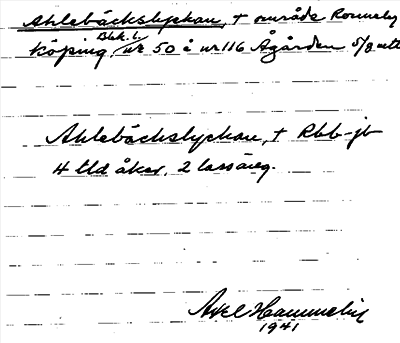 Ahlebäckslyckan, + område Ronneby
Bbk. l.
köping, nr 50 å nr 116 Ågården 5/8 mtl
Ahlebäckslyckan, + Rbb-jb
4 tld åker, 2 lassäng.
Axel Hammelin
1941